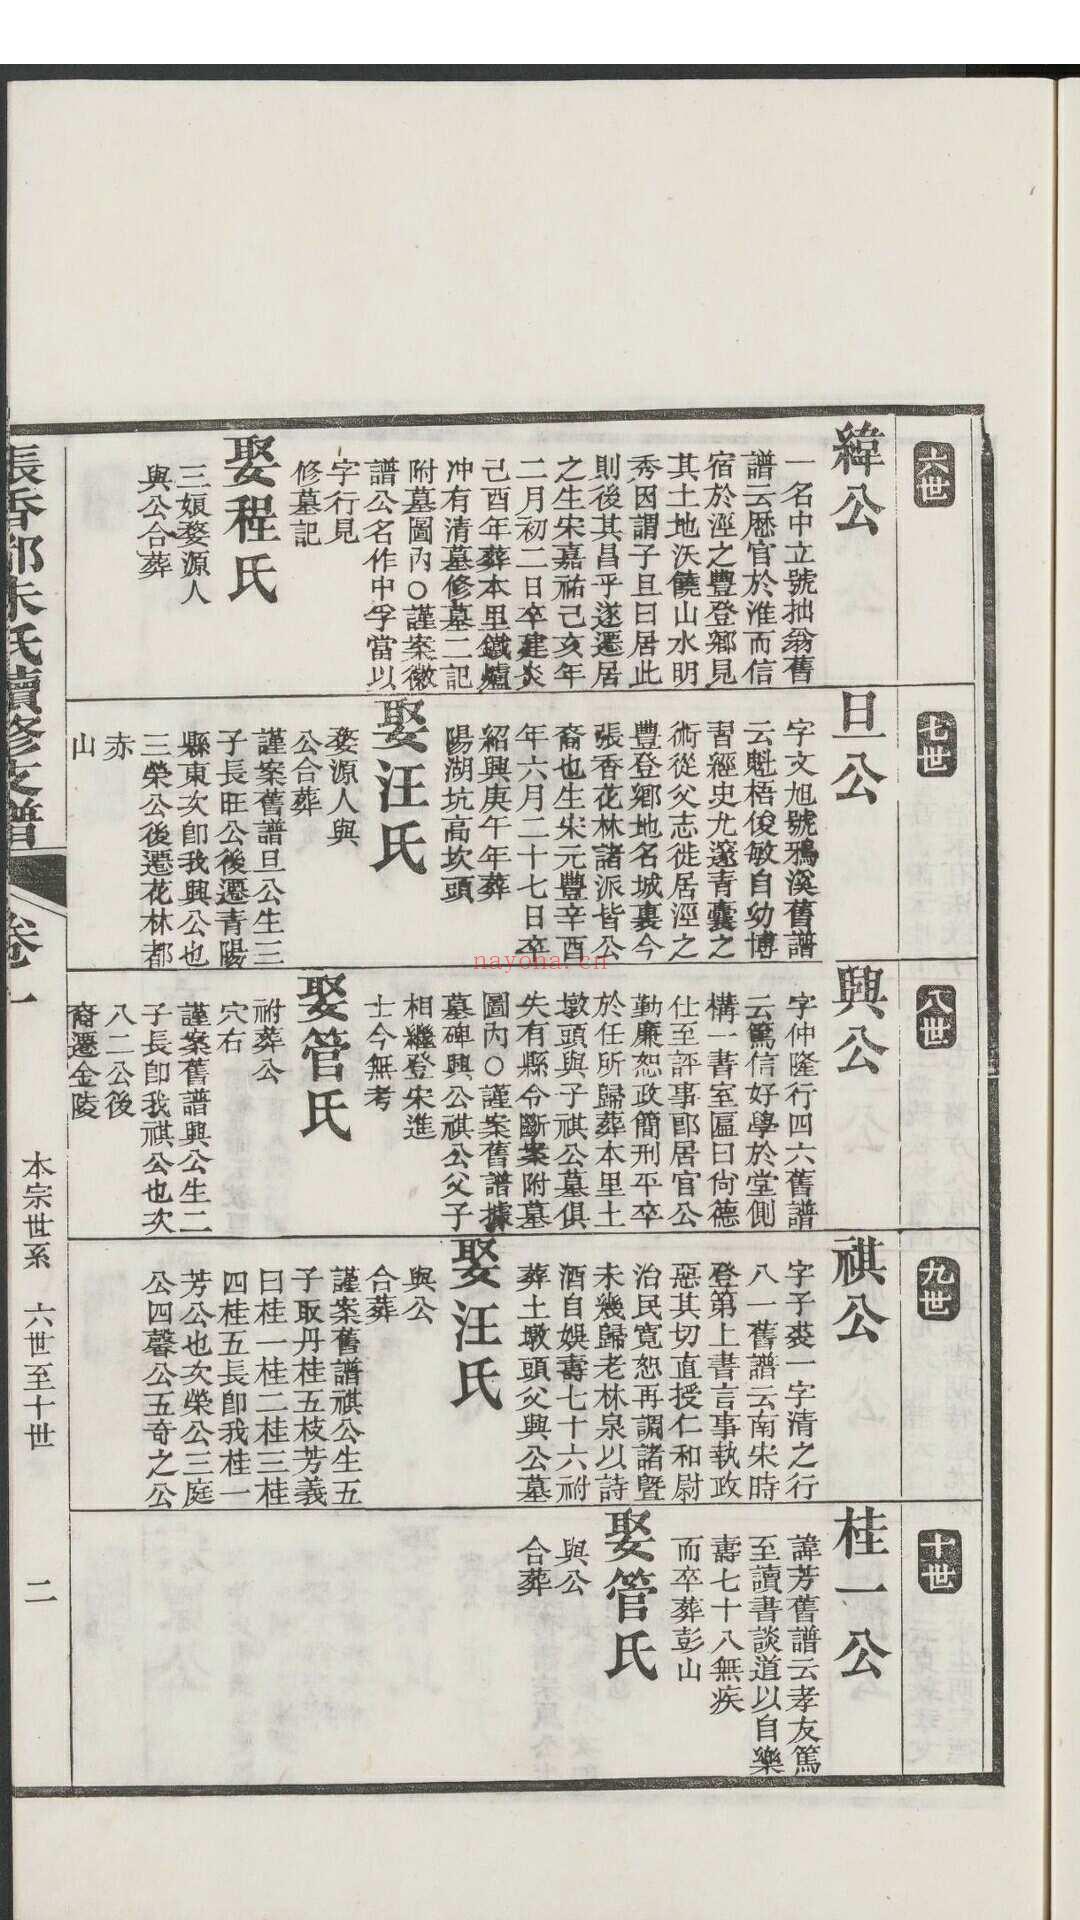 六世
緯公
一名中立號拙翁舊
譜云歴官於淮而信
宿於涇之豐登鄉見
其土地沃饒山水明
秀因謂子旦曰居此
則後其昌乎遂遷居
之生宋嘉祐己亥年
二月初二日卒建炎
己酉年葬本里鐵爐
冲有清墓修墓二記
附墓圖內○謹案徽
譜公名作中孚當以
字行見
修墓記
娶程氏
三娘婺源人
與公合葬
七世
旦公
字文旭號鴉溪舊譜
云魁梧俊敏自幼博
習經史尤邃青囊之
術從父志徙居涇之
豐登鄉地名城裏今
張香花林諸派皆公
裔也生宋元豐辛酉
年六月二十七日卒
紹興庚午年葬
陽湖坑高坎頭
娶汪氏
婺源人與
公合葬
謹案舊譜旦公生三
子長旺公後遷青陽
縣東次卽我興公也
三榮公後遷花林都
赤
山
八世
興公
字仲隆行四六舊譜
云篤信好學於堂側
構一書室匾曰尙德
仕至評事郎居官公
勤廉恕政簡刑平卒
於任所歸葬本里土
墩頭與子祺公墓俱
失有縣令斷案附墓
圖內○謹案舊譜據
墓碑興公祺公父子
相繼登宋進
士今無考
娶管氏
祔葬公
穴右
謹案舊譜興公生二
子長卽我祺公也次
八二公後
裔遷金陵
九世
祺公
字子裘一字清之行
八一舊譜云南宋時
登第上書言事執政
惡其切直授仁和尉
治民寬恕再調諸暨
未幾歸老林泉以詩
酒自娛壽七十六祔
葬土墩頭父興公墓
娶汪氏
與公
合葬
謹案舊譜祺公生五
子取丹桂五枝芳義
曰桂一桂二桂三桂
四桂五長卽我桂一
芳公也次榮公三庭
公四馨公五奇之公
十世
桂一公
諱芳舊譜云孝友篤
至讀書談道以自樂
壽七十八無疾
而卒葬彭山
娶管氏
與公
合葬
張香都朱氏續修支譜
卷一
本宗世系 六世至十世
二
nayona.cn